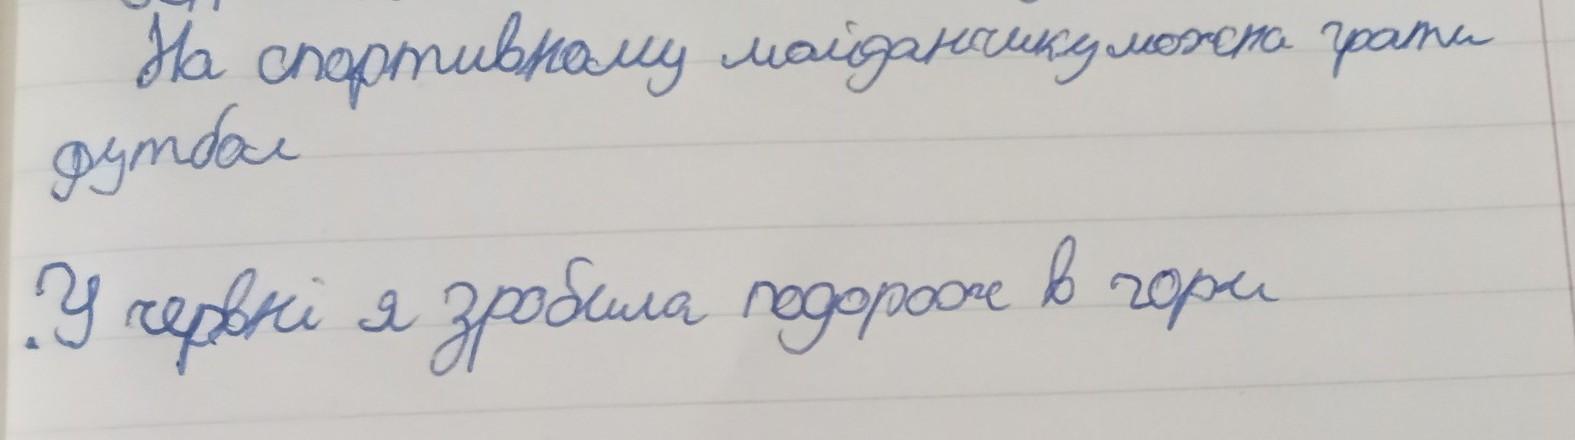 На спортивному майданчику можна грати
футбол
У червні я зробила подорож в гори